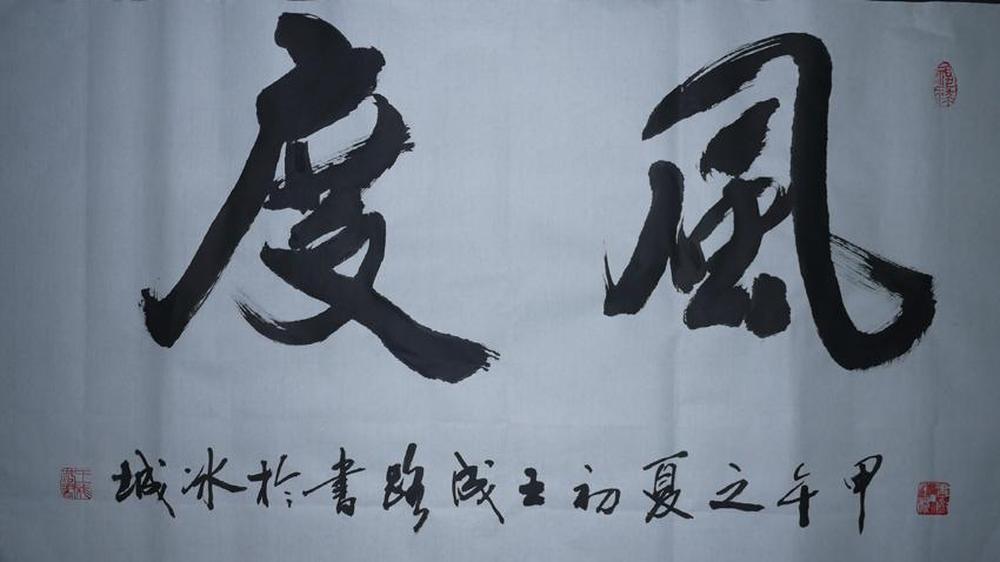 風度
甲午之夏初王成路書於冰城